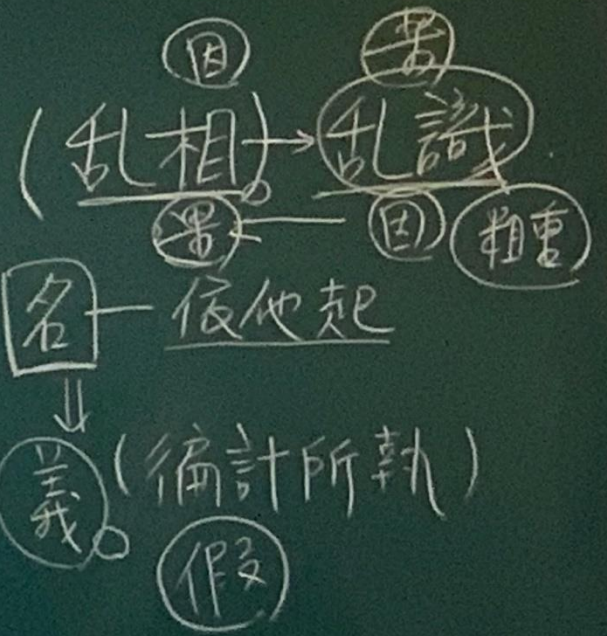 因 果
(乱相)→乱識
果 ← 因 粗重
名 — 依他起
⇓
義 (徧計所執)
假